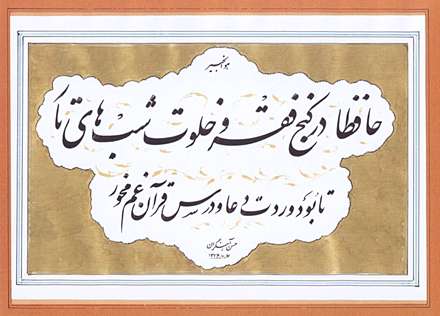 هوالخبیر
حافظا در کنج فقر و خلوت شب‌های تار
تا بُوَد وردت دعا و درس قرآن غم مخور
حسن آهنگران